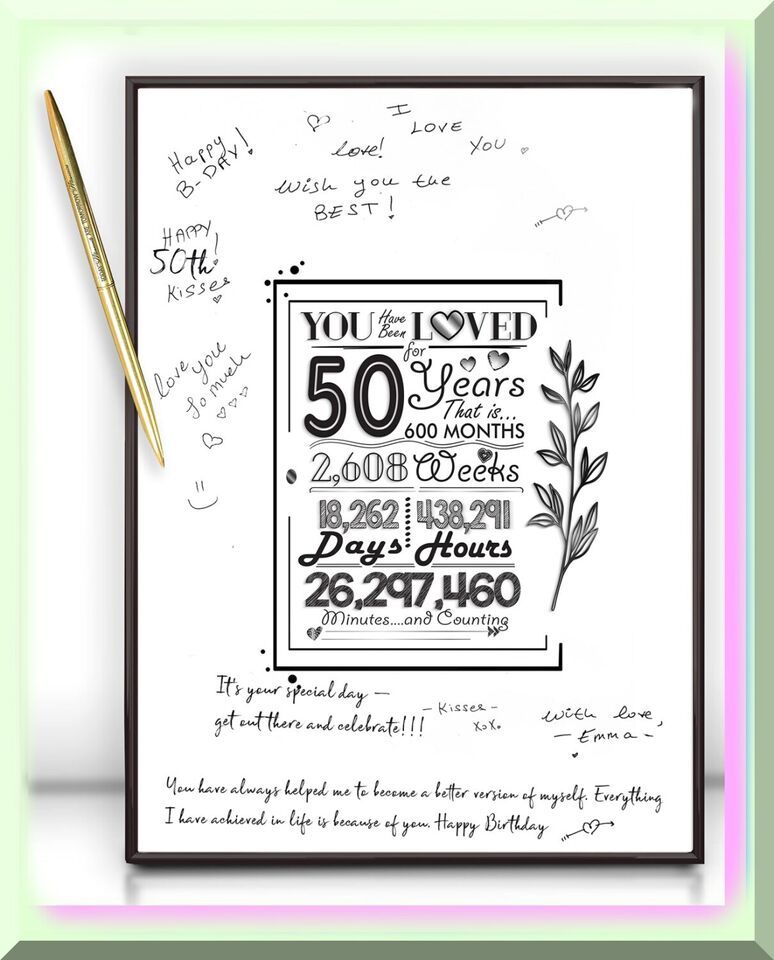 I
LOVE
YOU
Happy
B-DAY!
love!
Wish you the
BEST!
HAPPY
50th!
Kisses
love you
so much
YOU Have Been LOVED
for
50 Years
That is...
600 MONTHS
2,608 Weeks
18,262 438,291
Days Hours
26,297,460
Minutes....and Counting
It's your special day —
get out there and celebrate!!!
- Kisses -
XoXo
With love,
- Emma -
You have always helped me to become a better version of myself. Everything
I have achieved in life is because of you. Happy Birthday